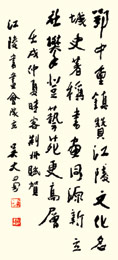 鄂中重镇赞江陵文化名
城史著称书画同源新立
社攀登艺苑更高层
壬戌仲夏时客荆州赋贺
江陵书画会成立 吴丈蜀